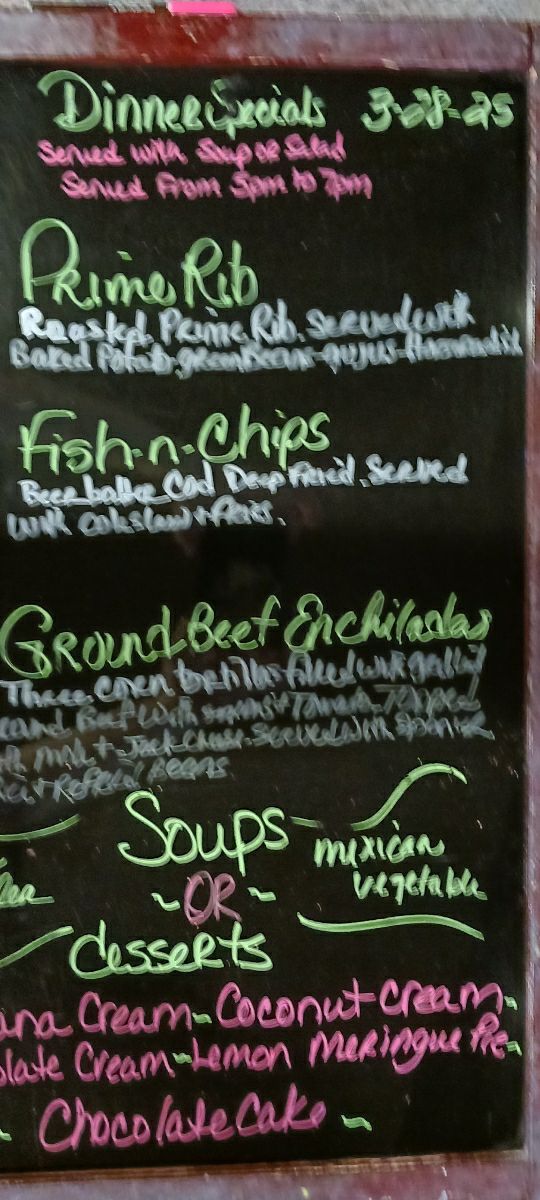 Dinner Specials 3-28-25
Served with Soup or Salad
Served From 5pm to 7pm
Prime Rib
Roasted Prime Rib. Served with
Baked Potato green Beans
Fish-n-Chips
Beer batter Cod Deep Fried. Served
with coleslaw + fries.
Ground Beef Enchiladas
Three corn tortillas filled with
Beef with onions + Tomato
+ Jack Cheese. Served with
Beans
Soups
mexican
vegetable
~OR~
desserts
ana Cream~Coconut Cream~
olate Cream~Lemon Meringue Pie~
Chocolate Cake ~